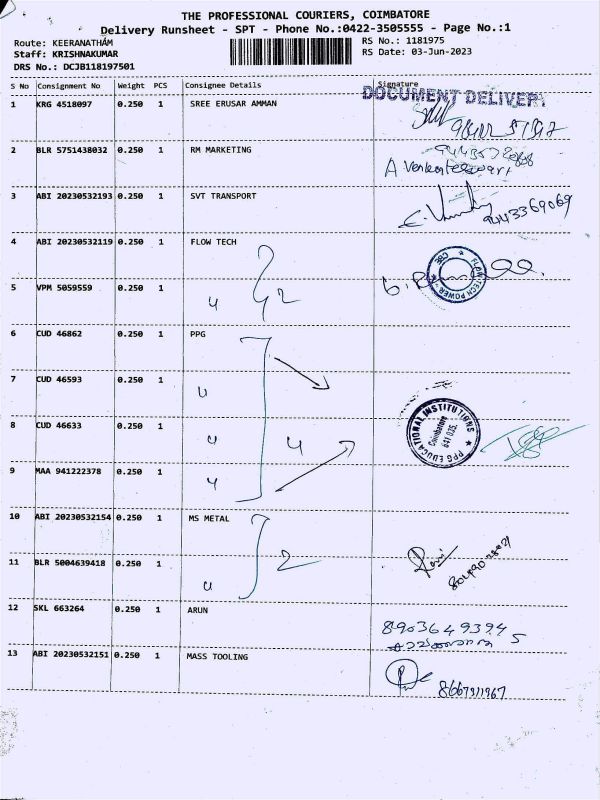 THE PROFESSIONAL COURIERS, COIMBATORE
Delivery Runsheet - SPT - Phone No.:0422-3505555 - Page No.:1
Route: KEERANATHAM
RS No.: 1181975
Staff: KRISHNAKUMAR
RS Date: 03-Jun-2023
DRS No.: DCJB118197501
S No Consignment No Weight PCS Consignee Details Signature
DOCUMENT DELIVERY
1 KRG 4518097 0.250 1 SREE ERUSAR AMMAN
2 BLR 5751438032 0.250 1 RM MARKETING
3 ABI 20230532193 0.250 1 SVT TRANSPORT
9443369069
4 ABI 20230532119 0.250 1 FLOW TECH
5 VPM 5059559 0.250 1 2
FLOW TECH POWER CBE
6 CUD 46862 0.250 1 PPG
7 CUD 46593 0.250 1
8 CUD 46633 0.250 1 4
PPG EDUCATIONAL INSTITUTIONS
Coimbatore
641 035.
9 MAA 941222378 0.250 1
10 ABI 20230532154 0.250 1 MS METAL
11 BLR 5004639418 0.250 1 2
12 SKL 663264 0.250 1 ARUN
13 ABI 20230532151 0.250 1 MASS TOOLING
8667311967